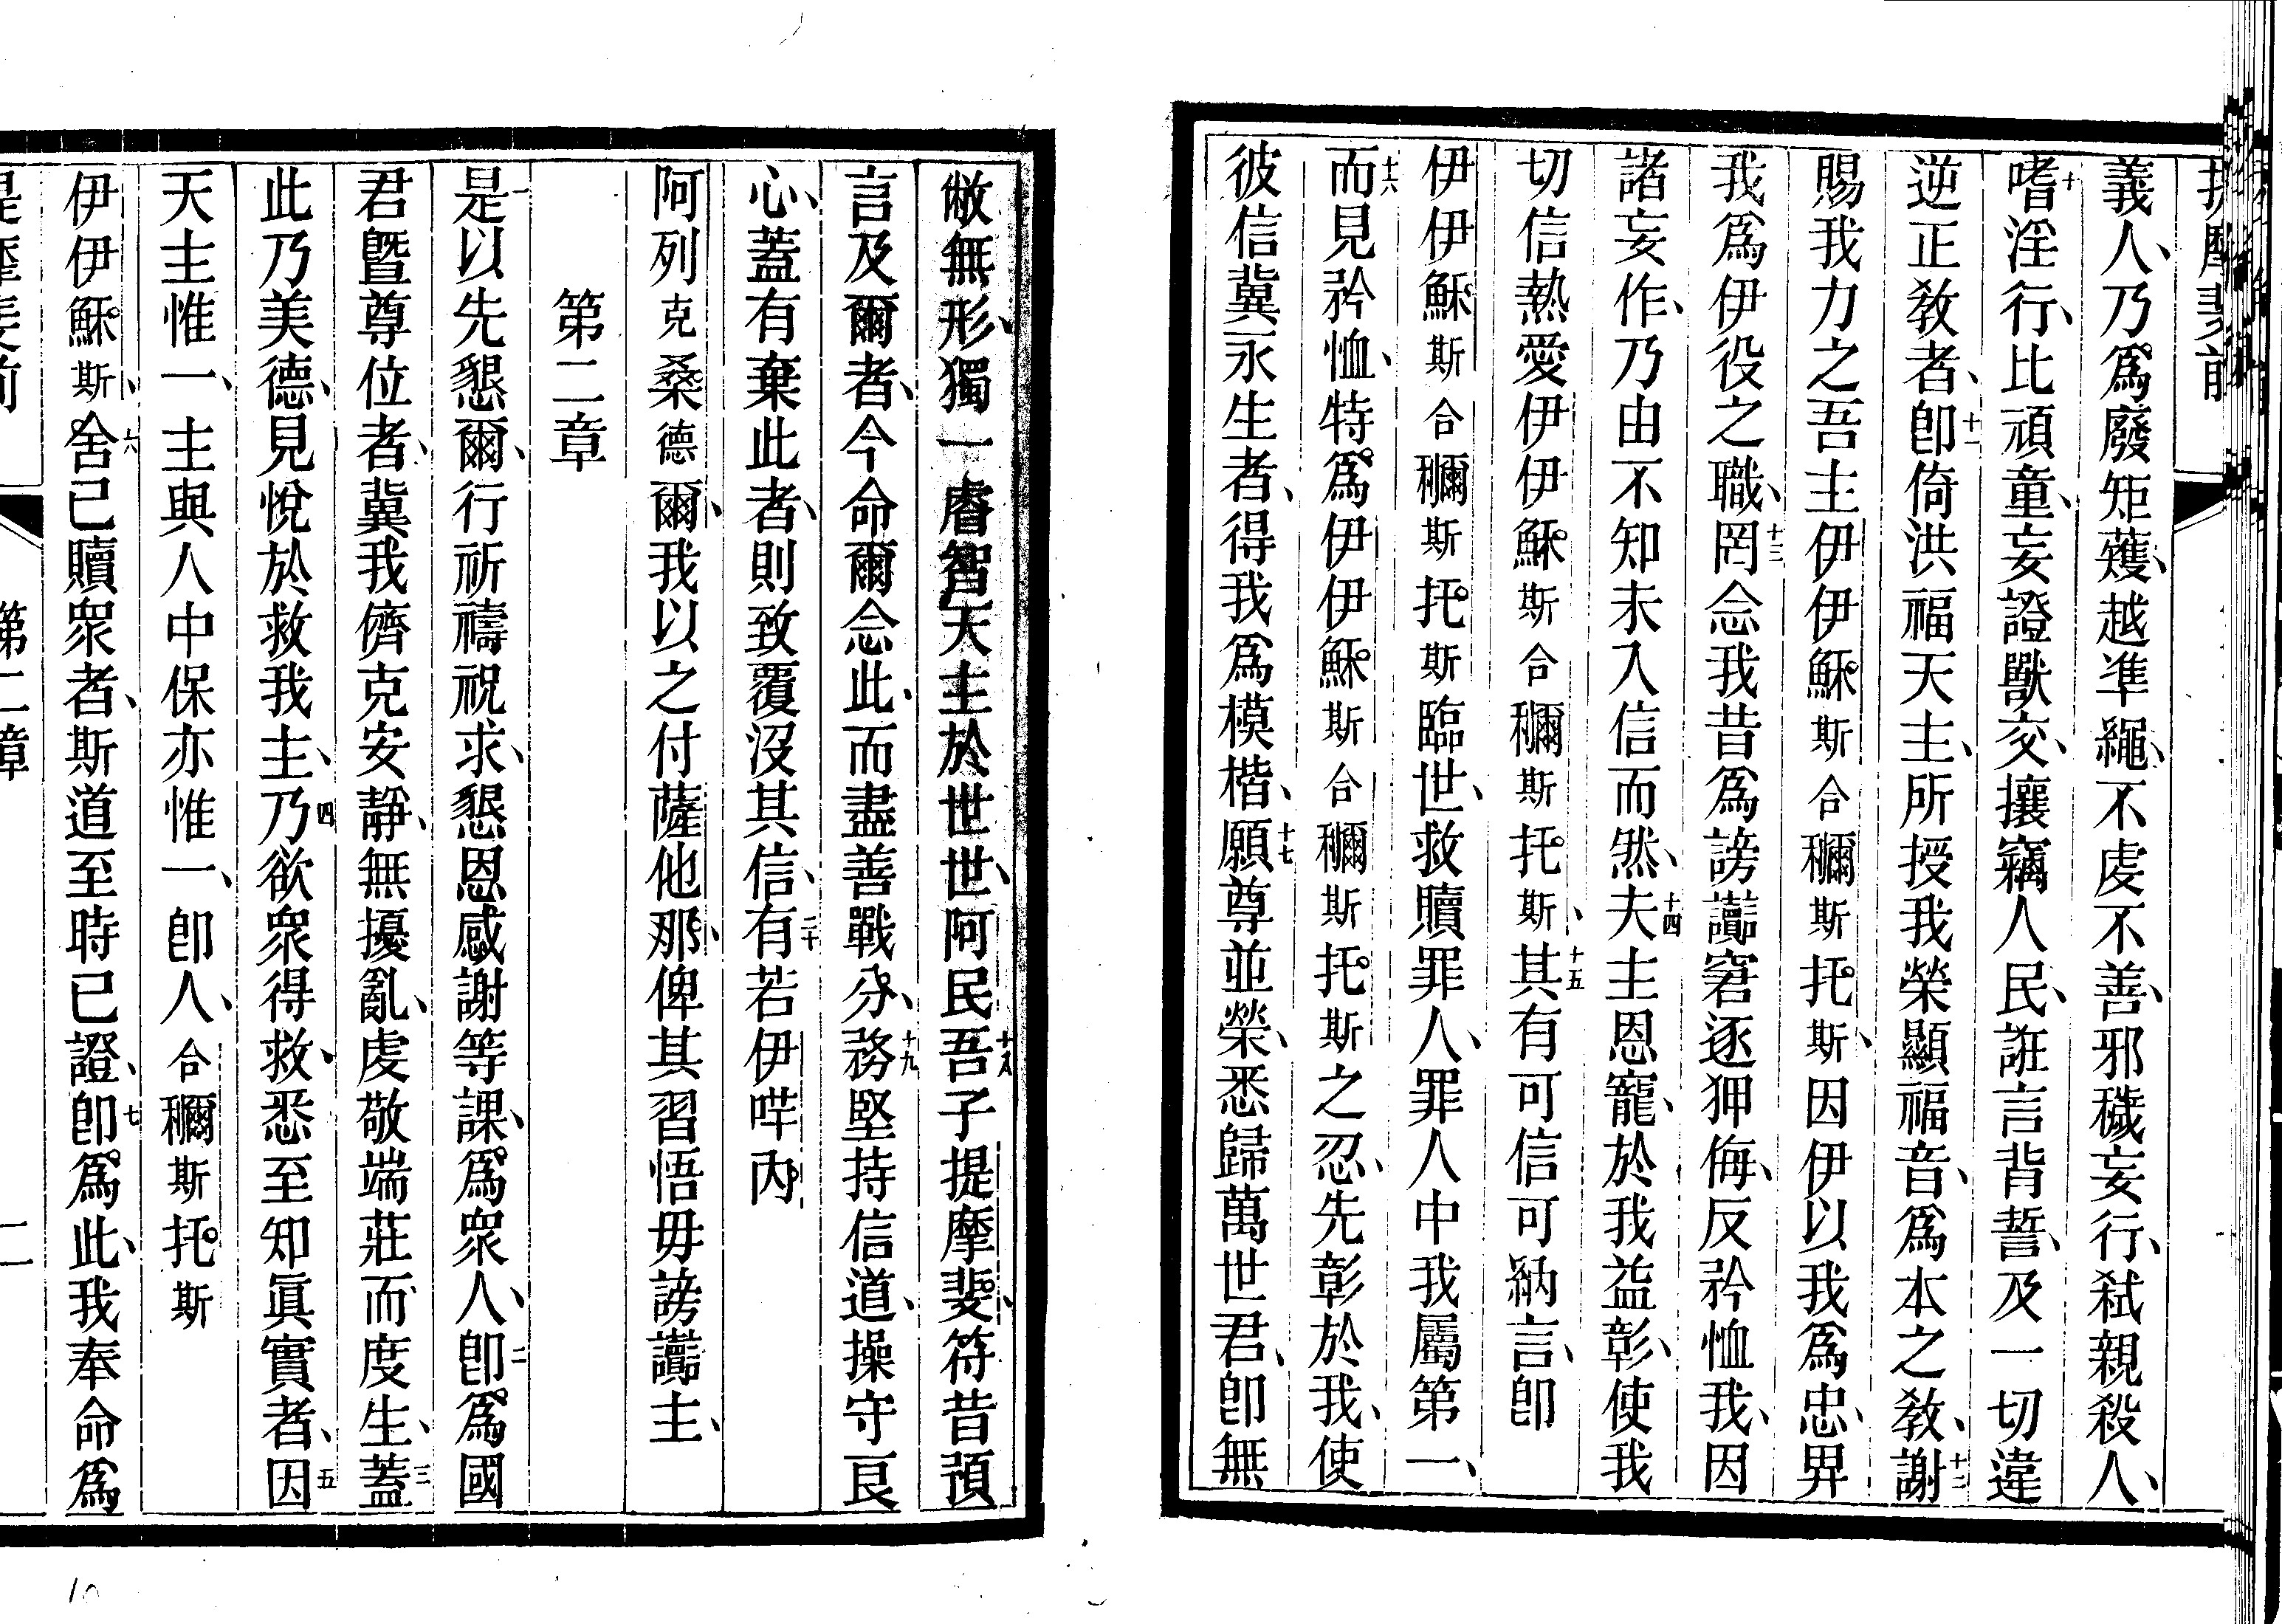 義人、乃爲廢矩蒦、越準繩、不虔不善、邪穢妄行、弒親殺人、
十嗜淫行、比頑童、妄證獸交、攘竊人民、誑言背誓、及一切違
逆正教者、十一卽倚洪福天主、所授我榮顯福音、爲本之教、十二謝
賜我力之吾主伊伊穌斯合穪斯托斯、因伊以我爲忠、畀
我爲伊役之職、十三罔念我昔爲謗讟窘逐狎侮、反矜恤我、因
諸妄作、乃由不知未入信而然、十四夫主恩寵、於我益彰、使我
切信熱愛伊伊穌斯合穪斯托斯、十五其有可信可納言、卽
伊伊穌斯合穪斯托斯臨世、救贖罪人、罪人中我屬第一、
十六而見矜恤、特爲伊伊穌斯合穪斯托斯之忍、先彰於我、使
彼信冀永生者、得我爲模楷、十七願尊並榮、悉歸萬世君、卽無
敝無形、獨一睿智天主於世世、阿民、十八吾子提摩斐、符昔預
言及爾者、今命爾念此、而盡善戰分、十九務堅持信道、操守良
心、蓋有棄此者、則致覆沒其信、二十有若伊咩丙
阿列克桑德爾、我以之付薩他那、俾其習悟毋謗讟主、
第二章
一是以先懇爾、行祈禱祝求、懇恩感謝等課、爲衆人、二卽爲國
君曁尊位者、冀我儕克安靜、無擾亂、虔敬端莊而度生、三蓋
此乃美德、見悅於救我主、四乃欲衆得救、悉至知眞實者、五因
天主惟一、主與人中保亦惟一、卽人、合穪斯托斯
伊伊穌斯、六舍己贖衆者、斯道至時已證、七卽爲此、我奉命爲
第二章
二